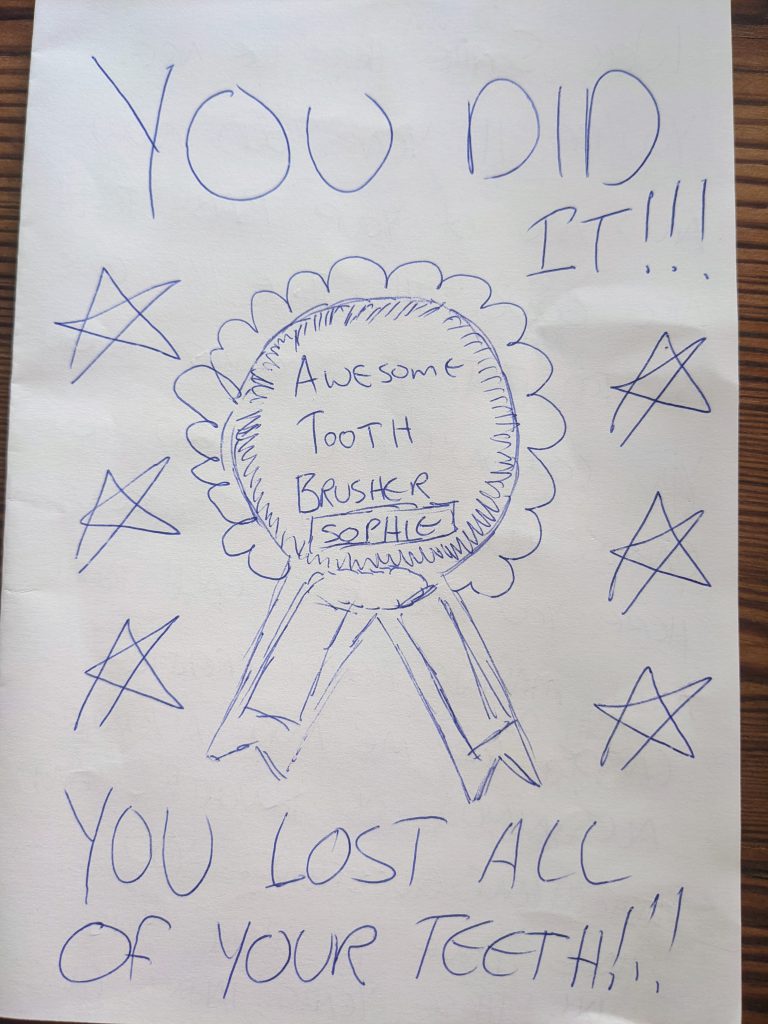 YOU DID
IT!!!
AWESOME
TOOTH
BRUSHER
SOPHIE
YOU LOST ALL
OF YOUR TEETH!!!